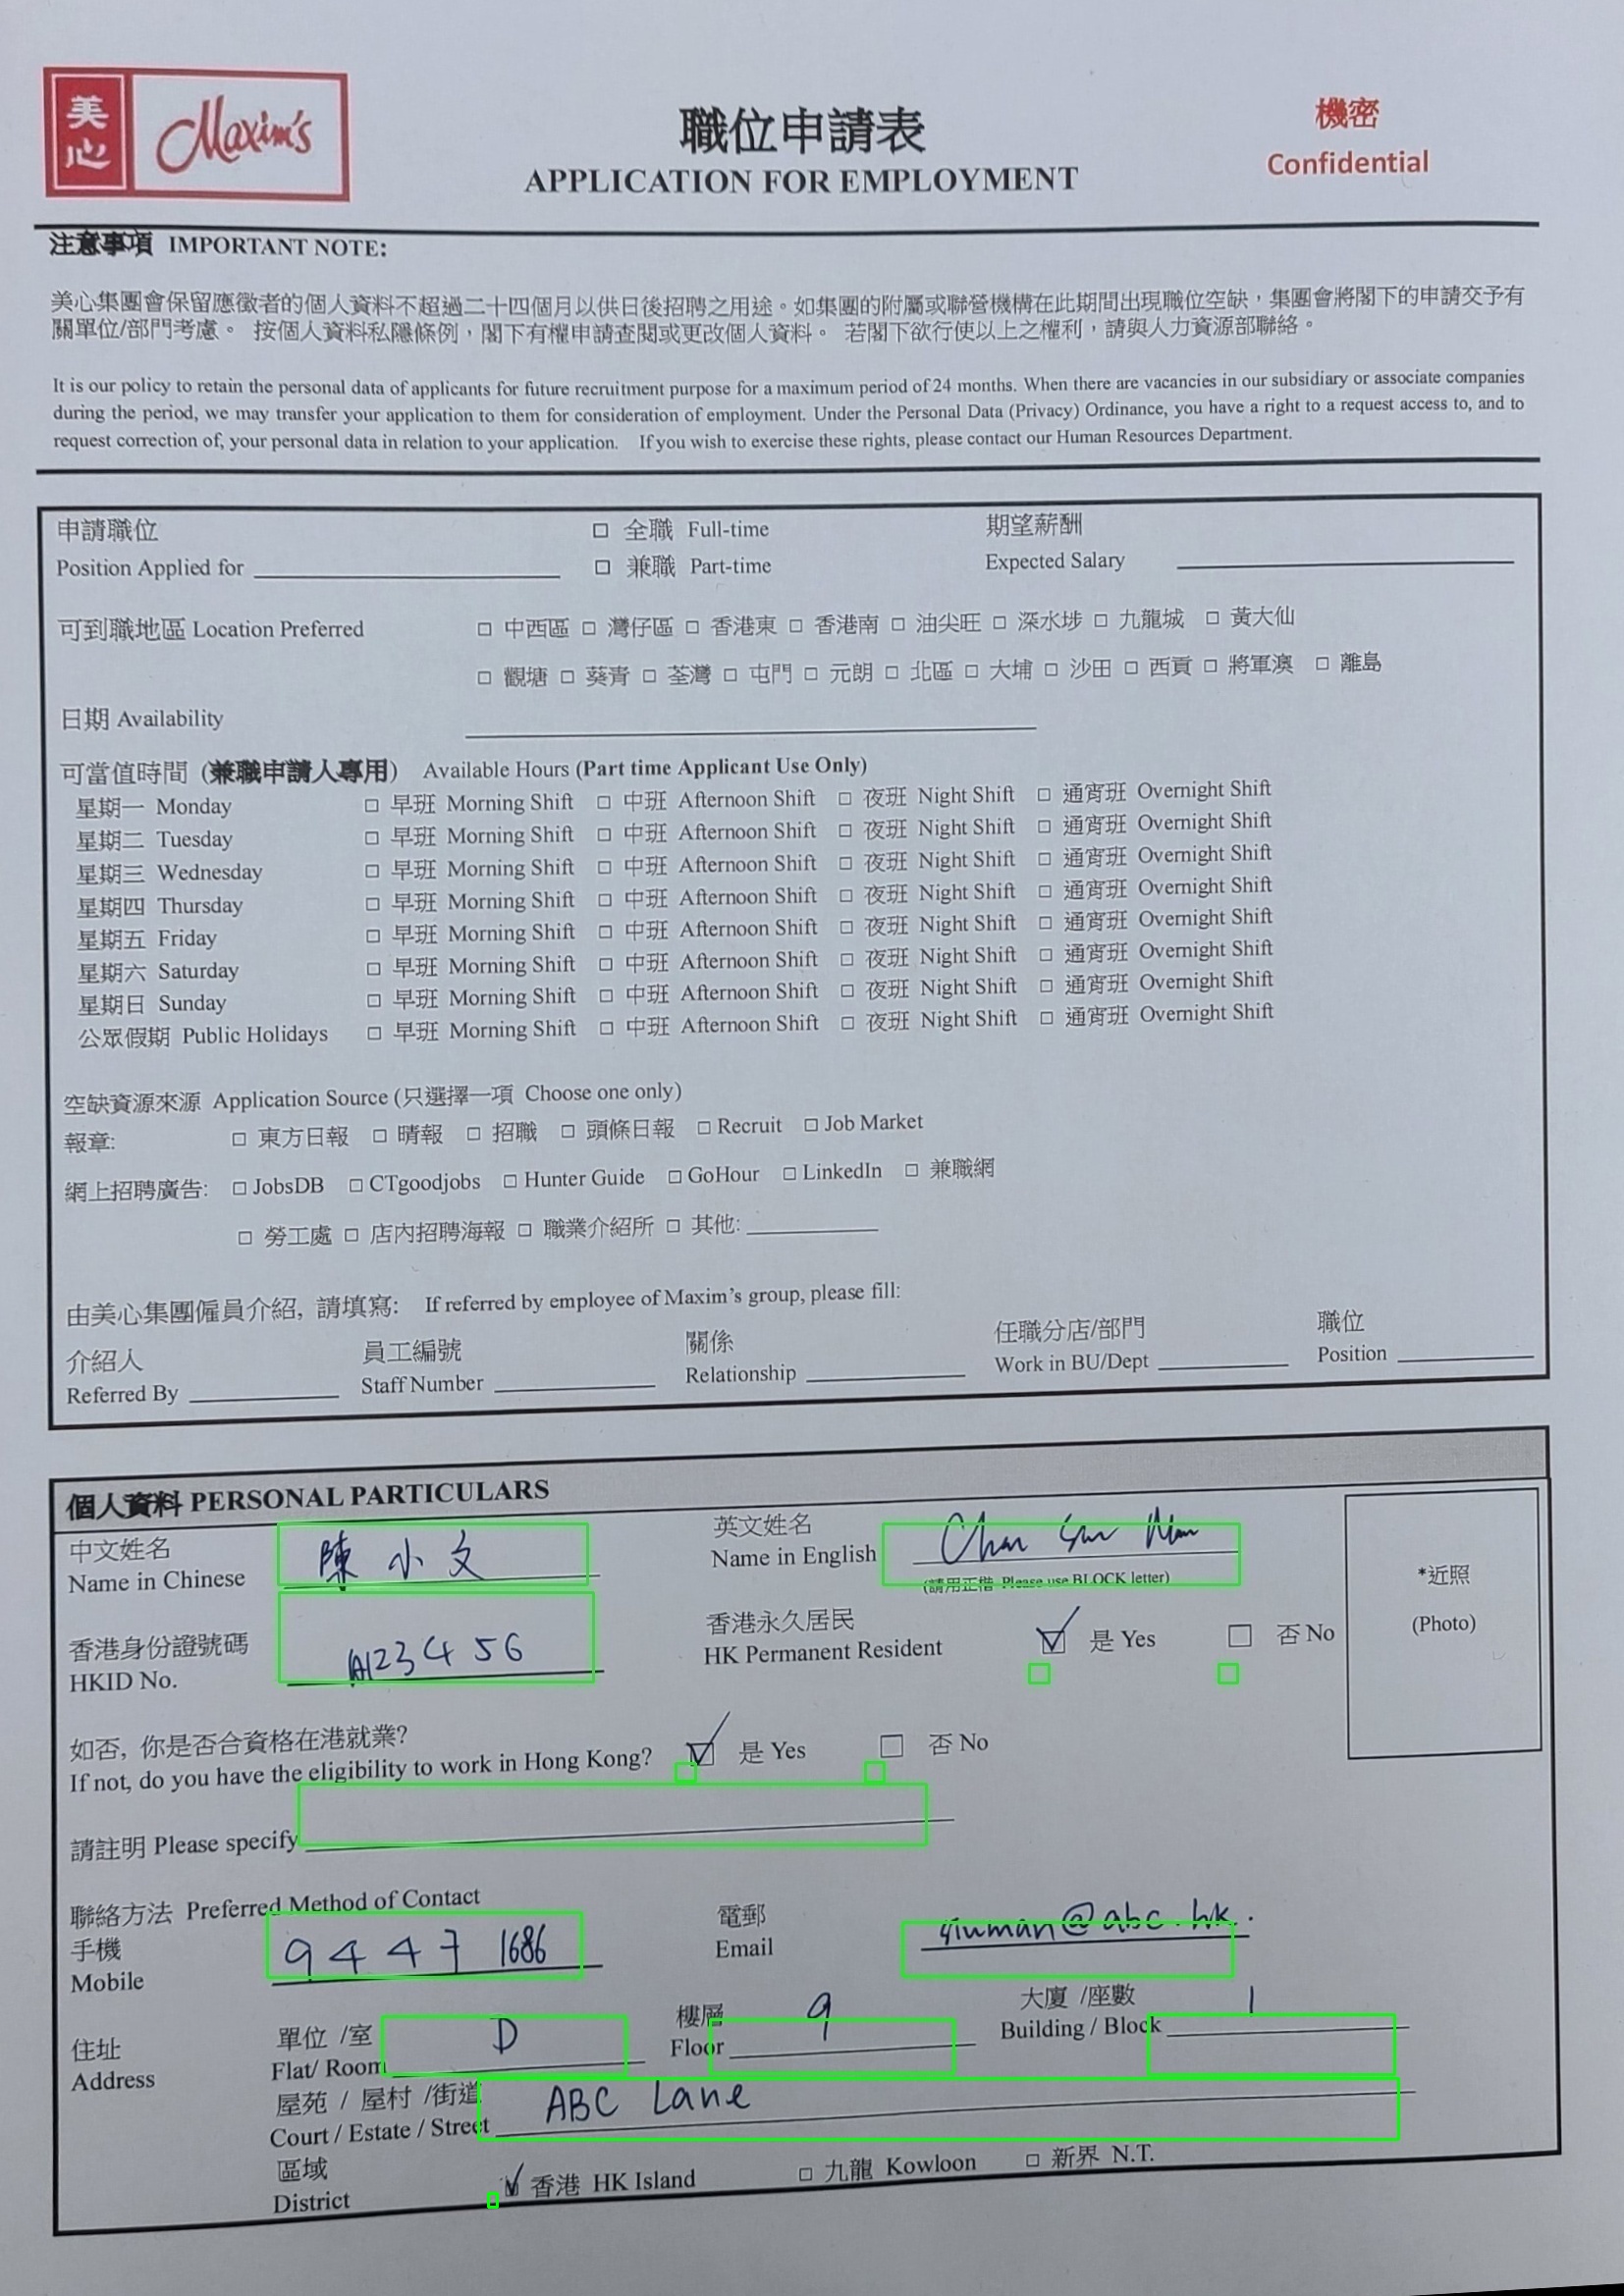 美心 Maxim's
職位申請表
APPLICATION FOR EMPLOYMENT
機密
Confidential
注意事項 IMPORTANT NOTE:
美心集團會保留應徵者的個人資料不超過二十四個月以供日後招聘之用途。如集團的附屬或聯營機構在此期間出現職位空缺，集團會將閣下的申請交予有
關單位/部門考慮。 按個人資料私隱條例，閣下有權申請查閱或更改個人資料。 若閣下欲行使以上之權利，請與人力資源部聯絡。
It is our policy to retain the personal data of applicants for future recruitment purpose for a maximum period of 24 months. When there are vacancies in our subsidiary or associate companies
during the period, we may transfer your application to them for consideration of employment. Under the Personal Data (Privacy) Ordinance, you have a right to a request access to, and to
request correction of, your personal data in relation to your application. If you wish to exercise these rights, please contact our Human Resources Department.
申請職位 □ 全職 Full-time 期望薪酬
Position Applied for □ 兼職 Part-time Expected Salary
可到職地區 Location Preferred □ 中西區 □ 灣仔區 □ 香港東 □ 香港南 □ 油尖旺 □ 深水埗 □ 九龍城 □ 黃大仙
□ 觀塘 □ 葵青 □ 荃灣 □ 屯門 □ 元朗 □ 北區 □ 大埔 □ 沙田 □ 西貢 □ 將軍澳 □ 離島
日期 Availability
可當值時間 (兼職申請人專用) Available Hours (Part time Applicant Use Only)
星期一 Monday □ 早班 Morning Shift □ 中班 Afternoon Shift □ 夜班 Night Shift □ 通宵班 Overnight Shift
星期二 Tuesday □ 早班 Morning Shift □ 中班 Afternoon Shift □ 夜班 Night Shift □ 通宵班 Overnight Shift
星期三 Wednesday □ 早班 Morning Shift □ 中班 Afternoon Shift □ 夜班 Night Shift □ 通宵班 Overnight Shift
星期四 Thursday □ 早班 Morning Shift □ 中班 Afternoon Shift □ 夜班 Night Shift □ 通宵班 Overnight Shift
星期五 Friday □ 早班 Morning Shift □ 中班 Afternoon Shift □ 夜班 Night Shift □ 通宵班 Overnight Shift
星期六 Saturday □ 早班 Morning Shift □ 中班 Afternoon Shift □ 夜班 Night Shift □ 通宵班 Overnight Shift
星期日 Sunday □ 早班 Morning Shift □ 中班 Afternoon Shift □ 夜班 Night Shift □ 通宵班 Overnight Shift
公眾假期 Public Holidays □ 早班 Morning Shift □ 中班 Afternoon Shift □ 夜班 Night Shift □ 通宵班 Overnight Shift
空缺資源來源 Application Source (只選擇一項 Choose one only)
報章: □ 東方日報 □ 晴報 □ 招職 □ 頭條日報 □ Recruit □ Job Market
網上招聘廣告: □ JobsDB □ CTgoodjobs □ Hunter Guide □ GoHour □ LinkedIn □ 兼職網
□ 勞工處 □ 店內招聘海報 □ 職業介紹所 □ 其他:
由美心集團僱員介紹, 請填寫: If referred by employee of Maxim's group, please fill:
介紹人 員工編號 關係 任職分店/部門 職位
Referred By Staff Number Relationship Work in BU/Dept Position
個人資料 PERSONAL PARTICULARS
中文姓名 陳小文 英文姓名 Chan Siu Man
Name in Chinese Name in English
(請用正楷 Please use BLOCK letter)
*近照
(Photo)
香港身份證號碼 A123456 香港永久居民
HKID No. HK Permanent Resident ☑ 是 Yes □ 否 No
如否, 你是否合資格在港就業?
If not, do you have the eligibility to work in Hong Kong? ☑ 是 Yes □ 否 No
請註明 Please specify
聯絡方法 Preferred Method of Contact
手機 9447 1686 電郵 siuman@abc.hk.
Mobile Email
住址 單位 /室 D 樓層 9 大廈 /座數 1
Address Flat/ Room Floor Building / Block
屋苑 / 屋村 /街道 ABC Lane
Court / Estate / Street
區域 ☑ 香港 HK Island □ 九龍 Kowloon □ 新界 N.T.
District